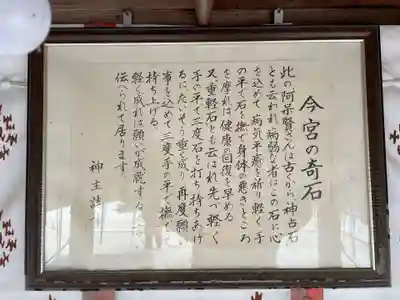 今宮の奇石
此の阿呆賢さんは古くから神占石
とも云われ病弱な者はこの石に心
を込めて病気平癒を祈り軽く手
の平で石を撫で身体の悪きところ
を摩れば健康の回復を早める
又重軽石とも云はれ先づ軽く
手の平で三度石を打ち持ちあげ
るにたいそう重く成り再度願い
事を込めて三度手の平で撫でて
持ち上げる
軽く成れば願いが成就すると
伝へられて居ります
神主